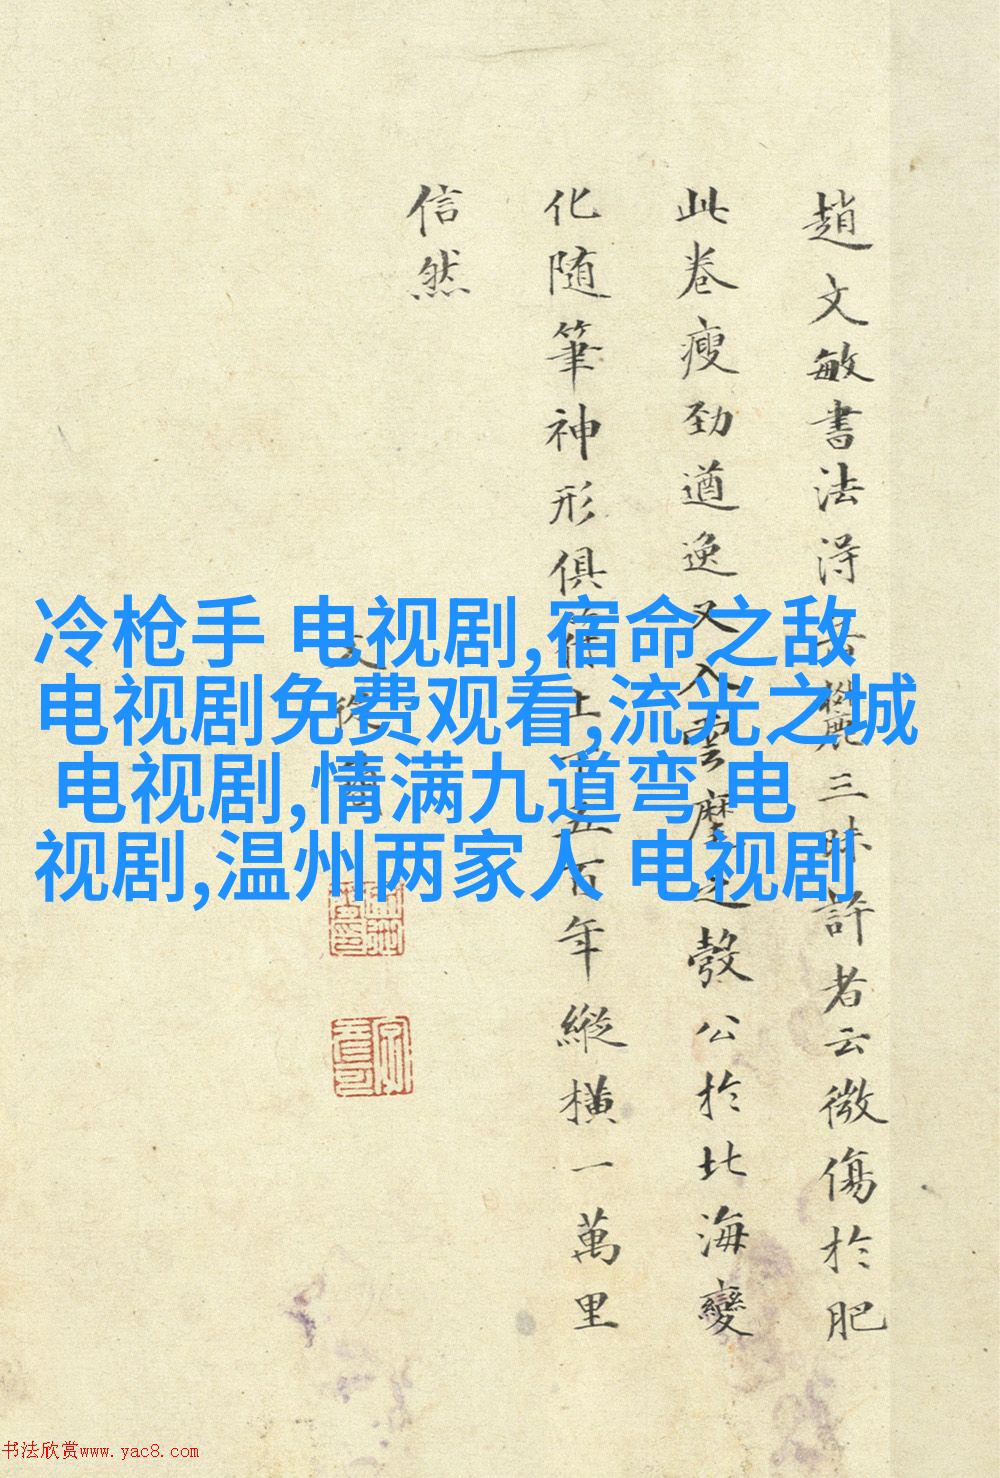 趙文敏書法淂三昧許者云微傷於肥
此卷瘦劲遒逸又入雲麾之彀公於北海變
化随筆神形俱上下五百年縱橫一萬里
信然
文從簡
冷枪手 电视剧,宿命之敌
电视剧免费观看,流光之城
电视剧,情满九道弯 电
视剧,温州两家人 电视剧
书法欣赏www.yac8.com